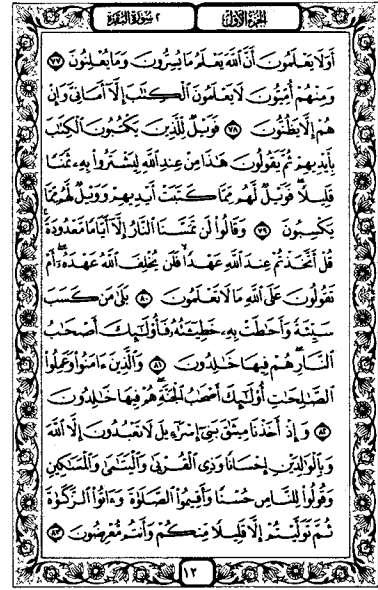 الجزء الأول ٢ سورة البقرة
أَوَلَا يَعْلَمُونَ أَنَّ ٱللَّهَ يَعْلَمُ مَا يُسِرُّونَ وَمَا يُعْلِنُونَ ٧٧
وَمِنْهُمْ أُمِّيُّونَ لَا يَعْلَمُونَ ٱلْكِتَٰبَ إِلَّآ أَمَانِىَّ وَإِنْ
هُمْ إِلَّا يَظُنُّونَ ٧٨ فَوَيْلٌ لِّلَّذِينَ يَكْتُبُونَ ٱلْكِتَٰبَ
بِأَيْدِيهِمْ ثُمَّ يَقُولُونَ هَٰذَا مِنْ عِندِ ٱللَّهِ لِيَشْتَرُوا۟ بِهِۦ ثَمَنًا
قَلِيلًا ۖ فَوَيْلٌ لَّهُم مِّمَّا كَتَبَتْ أَيْدِيهِمْ وَوَيْلٌ لَّهُم مِّمَّا
يَكْسِبُونَ ٧٩ وَقَالُوا۟ لَن تَمَسَّنَا ٱلنَّارُ إِلَّآ أَيَّامًا مَّعْدُودَةً ۚ
قُلْ أَتَّخَذْتُمْ عِندَ ٱللَّهِ عَهْدًا فَلَن يُخْلِفَ ٱللَّهُ عَهْدَهُۥٓ ۖ أَمْ
تَقُولُونَ عَلَى ٱللَّهِ مَا لَا تَعْلَمُونَ ٨٠ بَلَىٰ مَن كَسَبَ
سَيِّئَةً وَأَحَٰطَتْ بِهِۦ خَطِيٓـَٔتُهُۥ فَأُو۟لَٰٓئِكَ أَصْحَٰبُ
ٱلنَّارِ ۖ هُمْ فِيهَا خَٰلِدُونَ ٨١ وَٱلَّذِينَ ءَامَنُوا۟ وَعَمِلُوا۟
ٱلصَّٰلِحَٰتِ أُو۟لَٰٓئِكَ أَصْحَٰبُ ٱلْجَنَّةِ ۖ هُمْ فِيهَا خَٰلِدُونَ
٨٢ وَإِذْ أَخَذْنَا مِيثَٰقَ بَنِىٓ إِسْرَٰٓءِيلَ لَا تَعْبُدُونَ إِلَّا ٱللَّهَ
وَبِٱلْوَٰلِدَيْنِ إِحْسَانًا وَذِى ٱلْقُرْبَىٰ وَٱلْيَتَٰمَىٰ وَٱلْمَسَٰكِينِ
وَقُولُوا۟ لِلنَّاسِ حُسْنًا وَأَقِيمُوا۟ ٱلصَّلَوٰةَ وَءَاتُوا۟ ٱلزَّكَوٰةَ
ثُمَّ تَوَلَّيْتُمْ إِلَّا قَلِيلًا مِّنكُمْ وَأَنتُم مُّعْرِضُونَ ٨٣
١٢